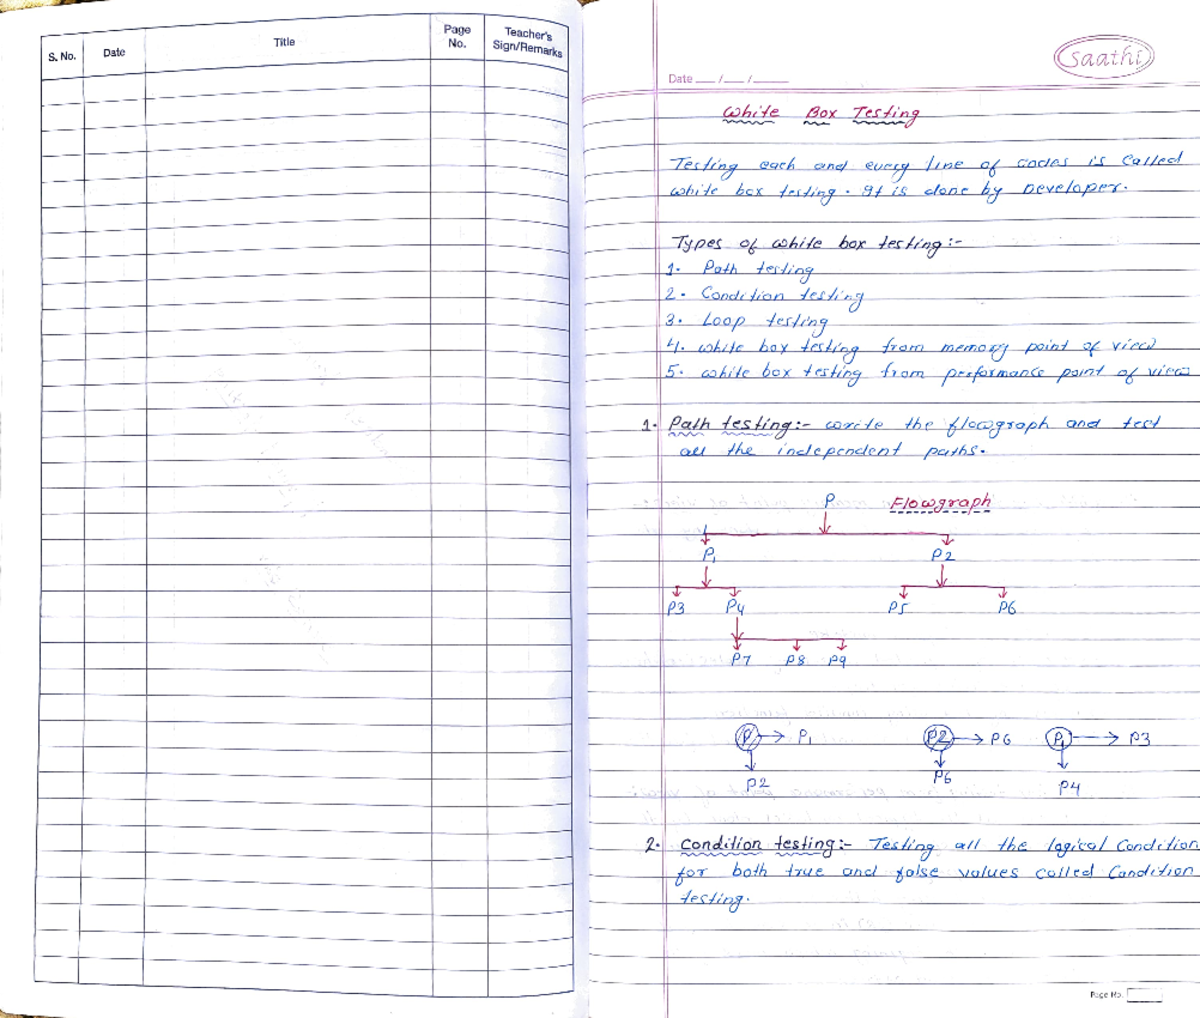 S. No. Date Title Page No. Teacher's Sign/Remarks
Saathi
Date __/__/____
White Box Testing
Testing each and every line of codes is called
white box testing. It is done by Developer.
Types of white box testing:-
1. Path testing
2. Condition testing
3. Loop testing
4. white box testing from memory point of view
5. white box testing from performance point of view
1. Path testing:- write the flowgraph and test
all the independent paths.
P Flowgraph
P1 P2
P3 P4 P5 P6
P7 P8 P9
P → P1 P2 → P6 P1 → P3
P2 P6 P4
2. Condition testing:- Testing all the logical Condition
for both true and false values called Condition
testing.
Page No.